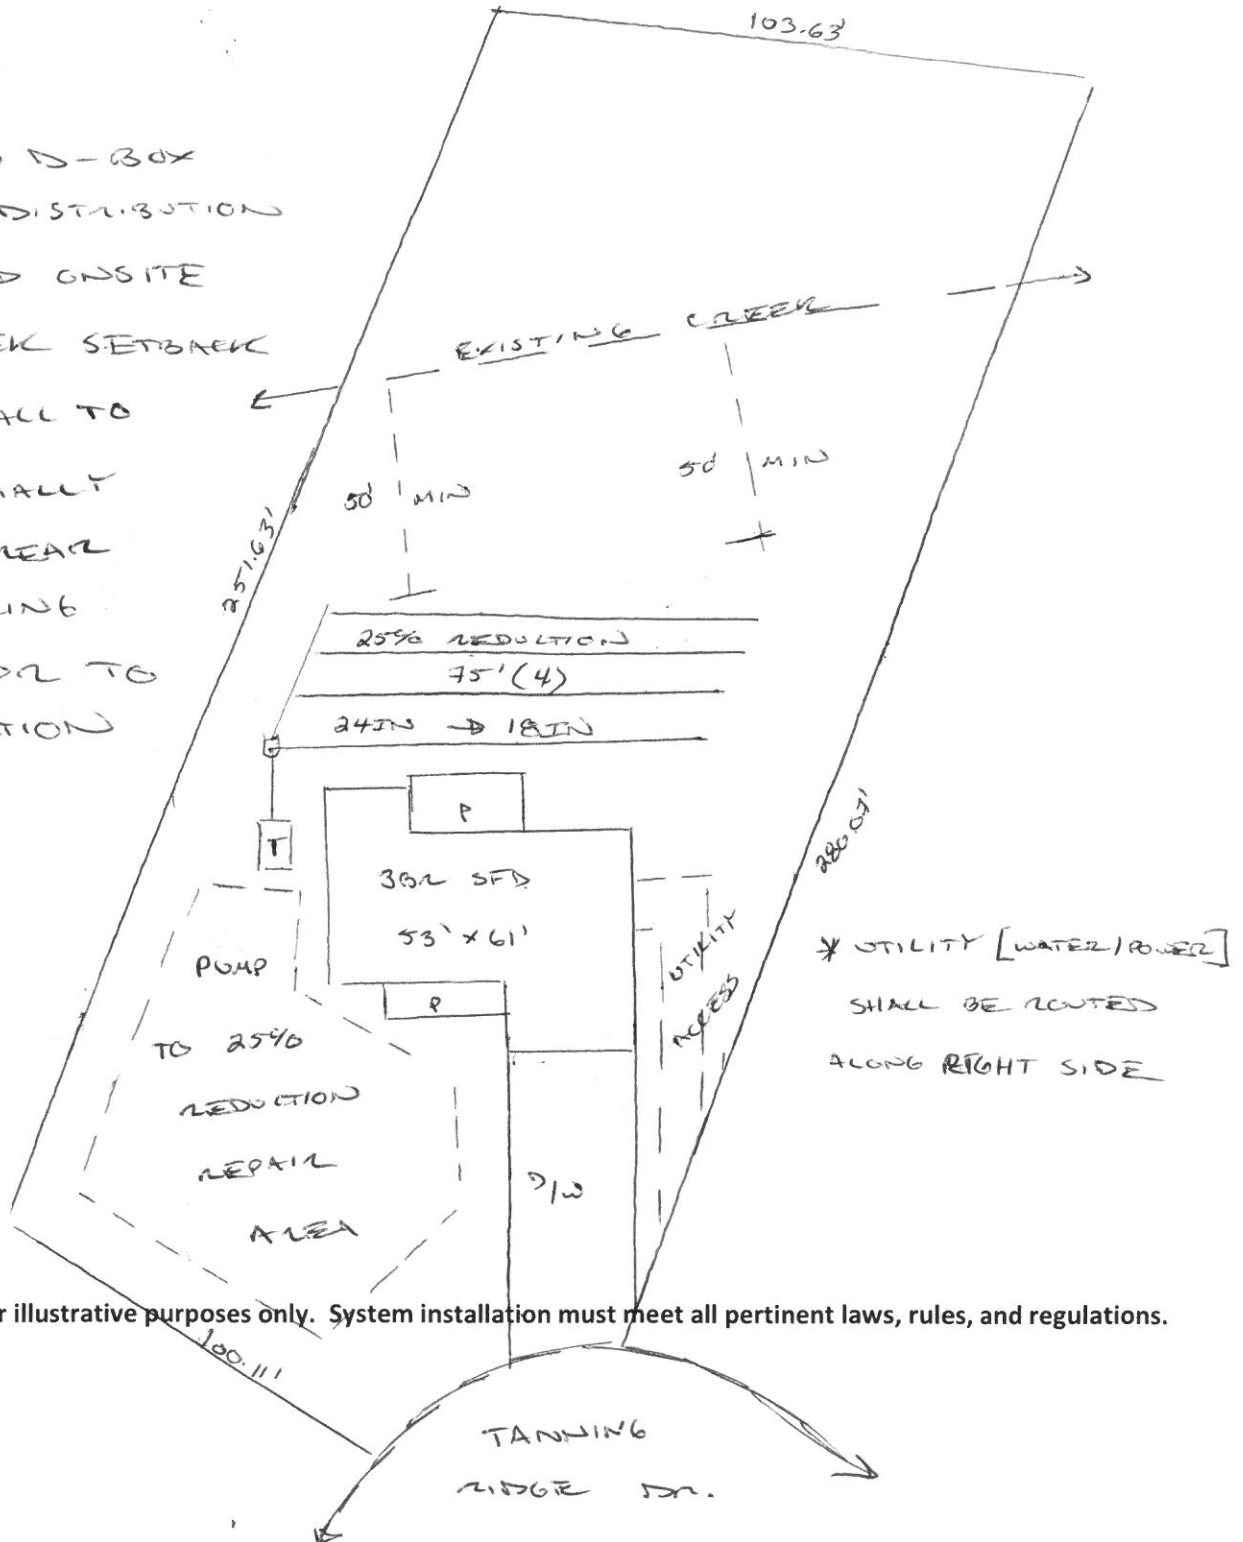 103.63'
D-BOX
DISTRIBUTION
ONSITE
SETBACK
TO
REAR
TO
EXISTING CREEK
50' MIN
50' MIN
251.63'
280.07'
25% REDUCTION
75' (4)
24IN → 18IN
T
P
3BR SFD
53' x 61'
P
PUMP
TO 25%
REDUCTION
REPAIR
AREA
D/W
UTILITY
ACCESS
* UTILITY [WATER/POWER]
SHALL BE ROUTED
ALONG RIGHT SIDE
r illustrative purposes only. System installation must meet all pertinent laws, rules, and regulations.
100.11'
TANNING
RIDGE DR.